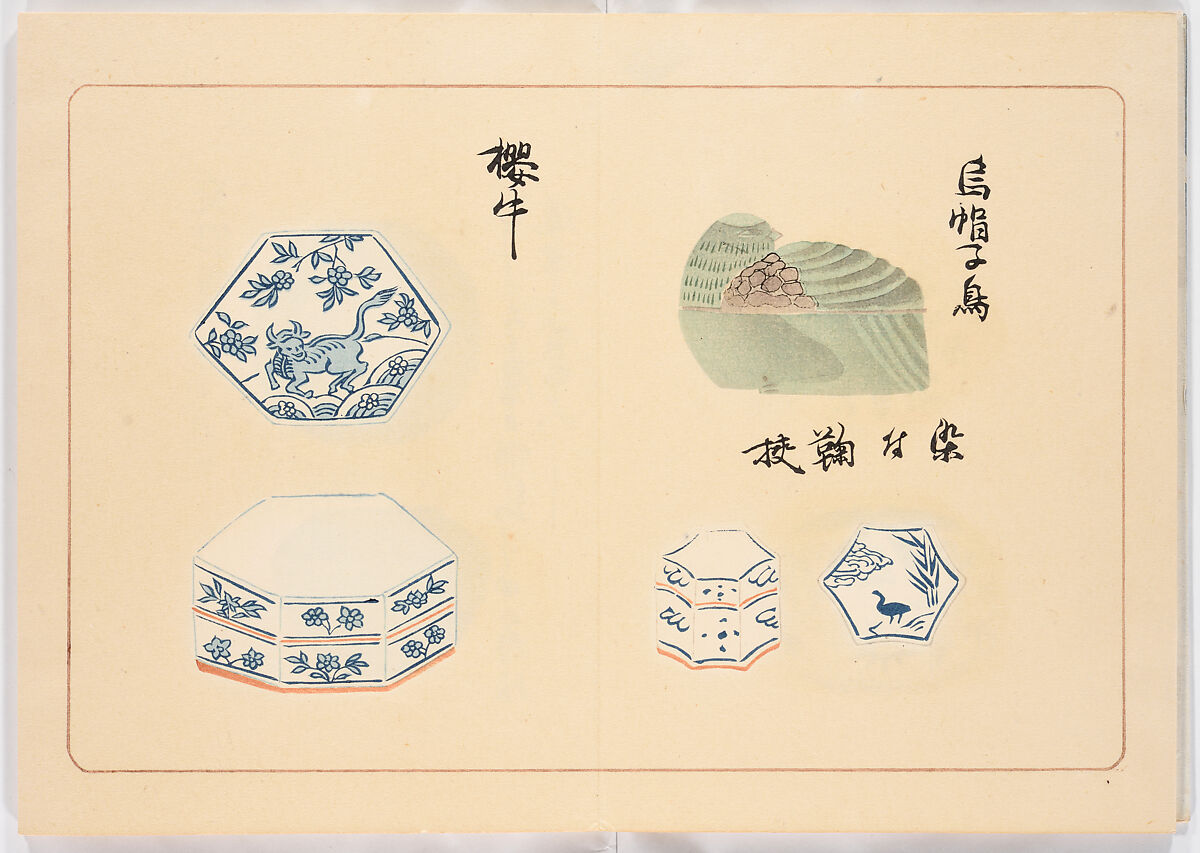 烏帽子鳥
染付鞠挟
櫻牛